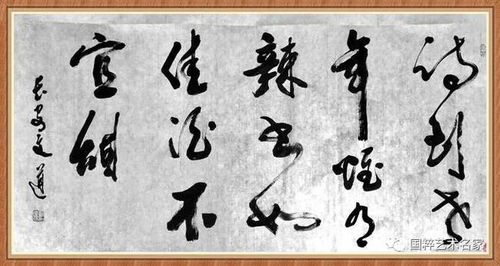 诗到老
年惟有
辣书如
佳酒不
宜甜
长安
国粹艺术名家